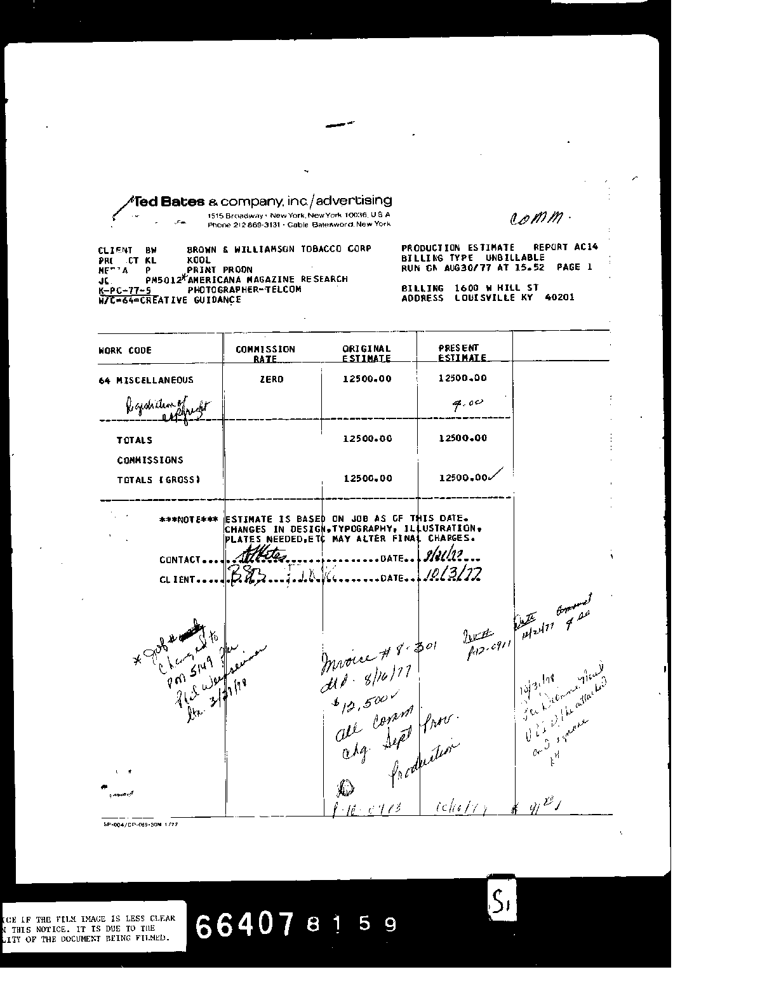 comm.
Ted Bates & company, inc./advertising
1515 Broadway • New York, New York 10036, U.S.A.
Phone 212 869-3131 • Cable Bateswood, New York
CLIENT BW BROWN & WILLIAMSON TOBACCO CORP
CT KL KOOL
P PRINT PRODN
PM5012*AMERICANA MAGAZINE RESEARCH
K-PC-77-5 PHOTOGRAPHER-TELCOM
W/C-64=CREATIVE GUIDANCE
PRODUCTION ESTIMATE REPORT AC14
BILLING TYPE UNBILLABLE
RUN ON AUG30/77 AT 15.52 PAGE 1
BILLING 1600 W HILL ST
ADDRESS LOUISVILLE KY 40201
WORK CODE COMMISSION RATE ORIGINAL ESTIMATE PRESENT ESTIMATE
64 MISCELLANEOUS ZERO 12500.00 12500.00
Registration of copyright 9.00
TOTALS 12500.00 12500.00
COMMISSIONS
TOTALS (GROSS) 12500.00 12500.00✓
***NOTE*** ESTIMATE IS BASED ON JOB AS OF THIS DATE.
CHANGES IN DESIGN,TYPOGRAPHY, ILLUSTRATION,
PLATES NEEDED,ETC MAY ALTER FINAL CHARGES.
CONTACT.... DATE...
CLIENT..... DATE... 10/3/77
* Job #
Changed to
PM 5149 Per
3/27/78
Invoice # 8-301
dtd. 8/16/77
$12,500
all Comm
chg. Sept Prov.
Production
Date
10/31/78
the attached
SP-004/CP-085-30M 1/77
S1
ICE IF THE FILM IMAGE IS LESS CLEAR
N THIS NOTICE. IT IS DUE TO THE
LITY OF THE DOCUMENT BEING FILMED.
66407 8159